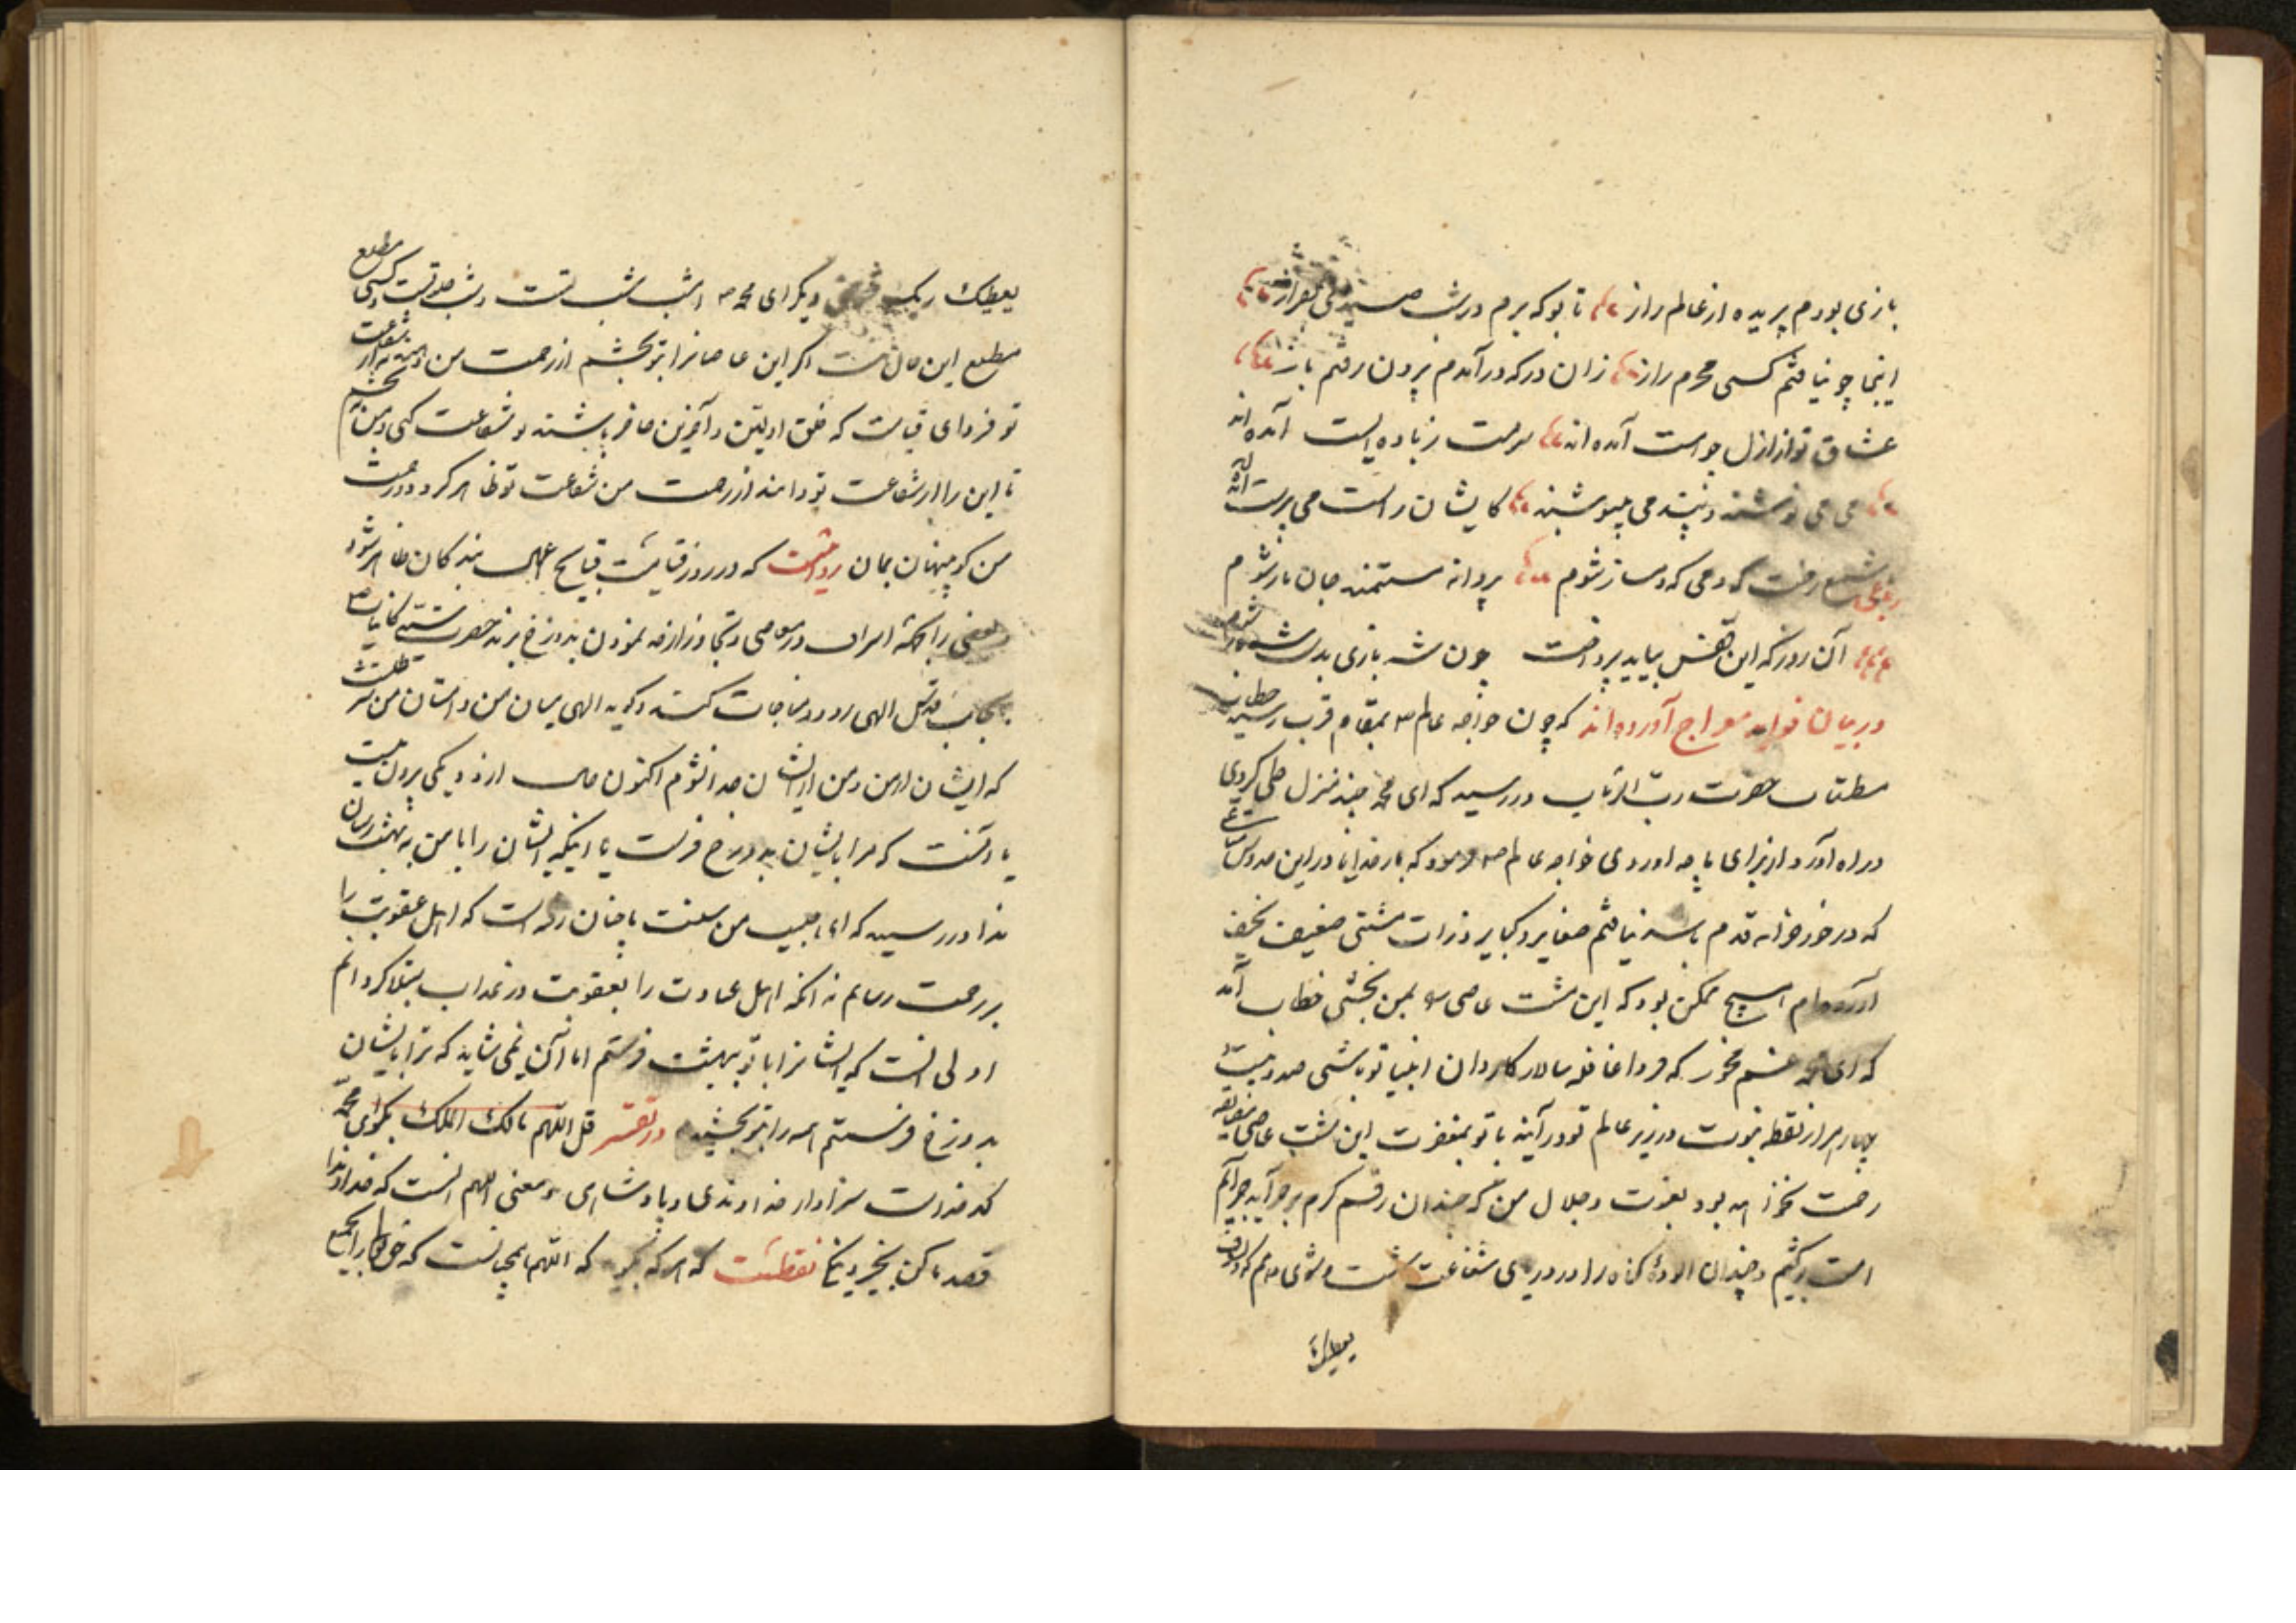 بازی بودم پریده از عالم راز تا بوکه برم درشب صیدی بفراز
اینجا چو نیافتم کسی محرم راز زان درکه درآمدم برون رفتم باز
عشاق تو از ازل چو مست آمده‌اند سرمست ز باده الست آمده‌اند
می می نوشند و پند می ننیوشند کایشان ز الست می پرست آمده‌اند
رباعی شمع رخت که دمی که دمساز شوم پروانه مستمند جان باز شوم
آن روز که این قفس بباید پرداخت چون شه بازی بدست شه باز شوم
در بیان فواید معراج آورده‌اند که چون خواجه عالم ص بمقام قرب رسید خطاب
مستطاب حضرت رب الارباب دررسید که ای محمد چند منزل طی کردی
دراه آورد از برای ما چه اوردی خواجه عالم ص فرمود که بارخدایا در این
که درخور قدم باشد نیافتم صغایر و کبایر ذرات مشتی ضعیف نحیف
آورده‌ام هیچ ممکن بود که این مشت عاصی را بمن بخشی خطاب آمد
که ای محمد غم مخور که فردا قافله سالار کاروان انبیا تو باشی صد و بیست
چهار هزار نقطه نبوت در زیر علم تو در آیند با تو بمغفرت این مشت عاصی
رحمت نخواهد بود بعزت و جلال من که چندان رقم کرم بر جرایم
امت کشم و چندان الوده کناه را در دریای شفاعت شست وشوی دهم که ولسوف
یعطیک
یعطیک ربک فترضی دیکر ای محمد ص امشب شب تست و شب خلوتست و کسی مطلع
مطلع این حال نیست اکر این عاصیانرا بتو بخشم از رحمت من و شفاعت
تو فردای قیامت که خلق اولین و آخرین حاضر باشند و شفاعت کنی و من بخشم
تا این را از شفاعت تو دانند از رحمت من شفاعت تو ظاهر کردد و رحمت
من کو پنهان بمان روایت که در روز قیامت قبایح اعمال بندکان ظاهر شود
و بعضی را بحکم اسراف در معاصی و تجاوز از حد نمودن بدوزخ برند حضرت سید کاینات ص
بجانب قدس الهی رود و مناجات کند و کوید الهی میان من و امتان من شرطست
که ایشان از من و من از ایشان جدا نشوم اکنون حال از دو یکی برون نیست
یا آنست که مرا با ایشان بدوزخ فرست یا اینکه ایشان را با من به بهشت رسان
ندا دررسید که ای حبیب من سنت ما چنان رفته است که اهل عقوبت را
بر رحمت رسانم نه انکه اهل عبادت را بعقوبت در عذاب مبتلا کردانم
اولی انست که ایشانرا با تو ببهشت فرستم اما آن نمی شاید که ترا با ایشان
بدوزخ فرستم همه را بتو بخشیدم در تفسیر قل اللهم مالک الملک بکو ای محمد
که خداست سزاوار خداوندی و پادشاهی و معنی اللهم انست که خداوندا
قصد ما کن بخیر و نقلست که هر که بکوید که اللهم همچنانست که حق را بجمیع